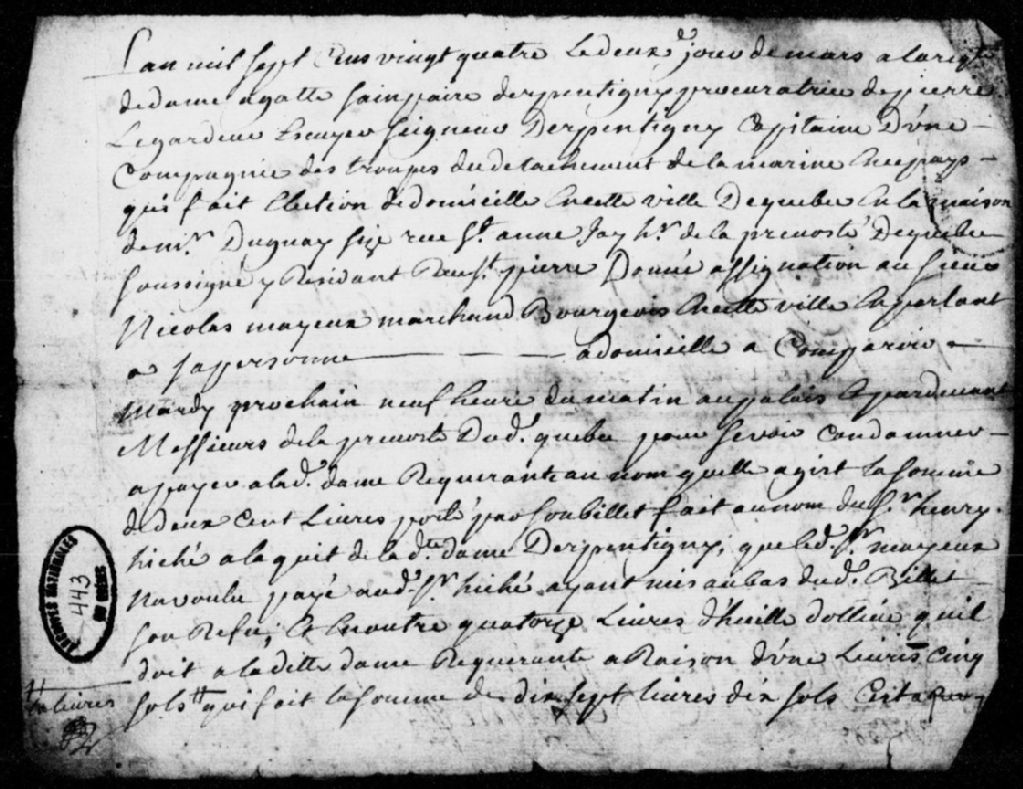 Lan mil sept Cens vingt quatre Le deux.e jour de mars a la reqte
de dame agatte sainpaire derpentigny procuratrice de pierre
Legardeur Escuyer Seigneur Derpentigny Capitaine D'vne
Compagnie des troupes du detachement de la marine En ce pays
qui fait Election de domicille En cette ville De quebec En la maison
de mr. Duguay size rue St. anne Jay hr. de la prevosté De quebec
soussigné y Residant Rue St. pierre Donné assignation au sieur
Nicolas mayeux marchand Bourgeois En cette ville En parlant
a sa personne a domicille a Comparoir
Mardy prochain neuf heure du matin au palais Et pardevant
Messieurs de la prevosté Dud. quebec pour se voir Condamner
a payer a lad. dame Requerante au nom quelle agist la somme
de deux Cent Livres porté par son billet fait au nom du Sr. henry
hiché a laquit de la dte. dame Derpentigny, que led. Sr. mayeux
na voulu payé aud. Sr. hiché ayant mis au bas dud. Billet
son Refu, Et En outre quatorze Livres d'huille dollive quil
doit a laditte dame Requerante a Raison d'vne Livres Cinq
sols qui fait la somme de dix sept livres dix sols
livres
ARCHIVES NATIONALES
443
DU QUEBEC